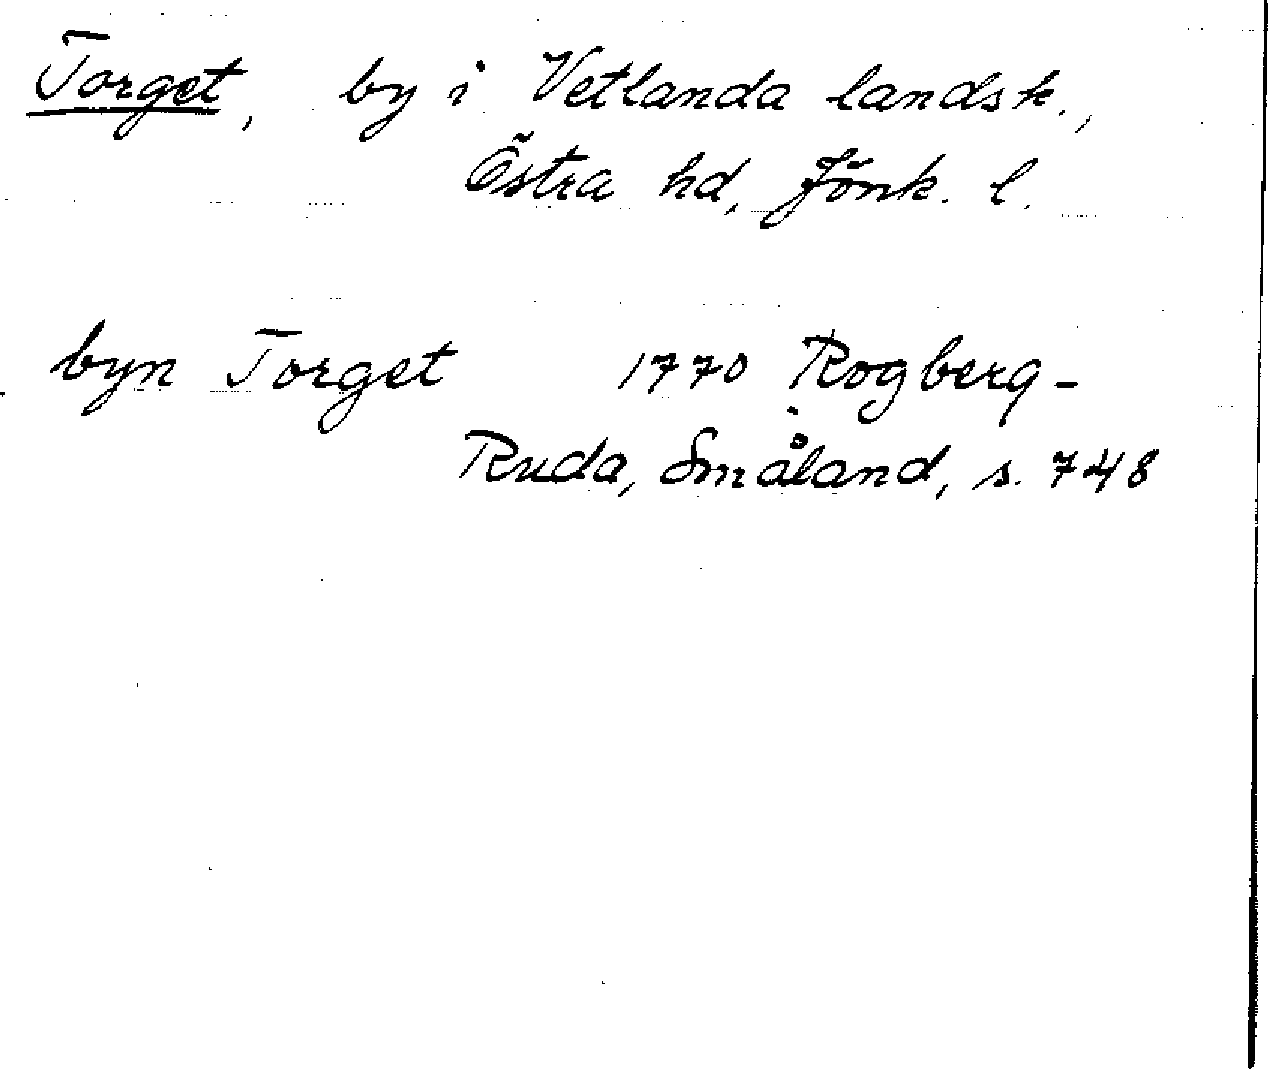 Torget, by i Vetlanda landsk.,
Östra hd, Jönk. l.
byn Torget 1770 Rogberg-
Ruda, Småland, s. 748